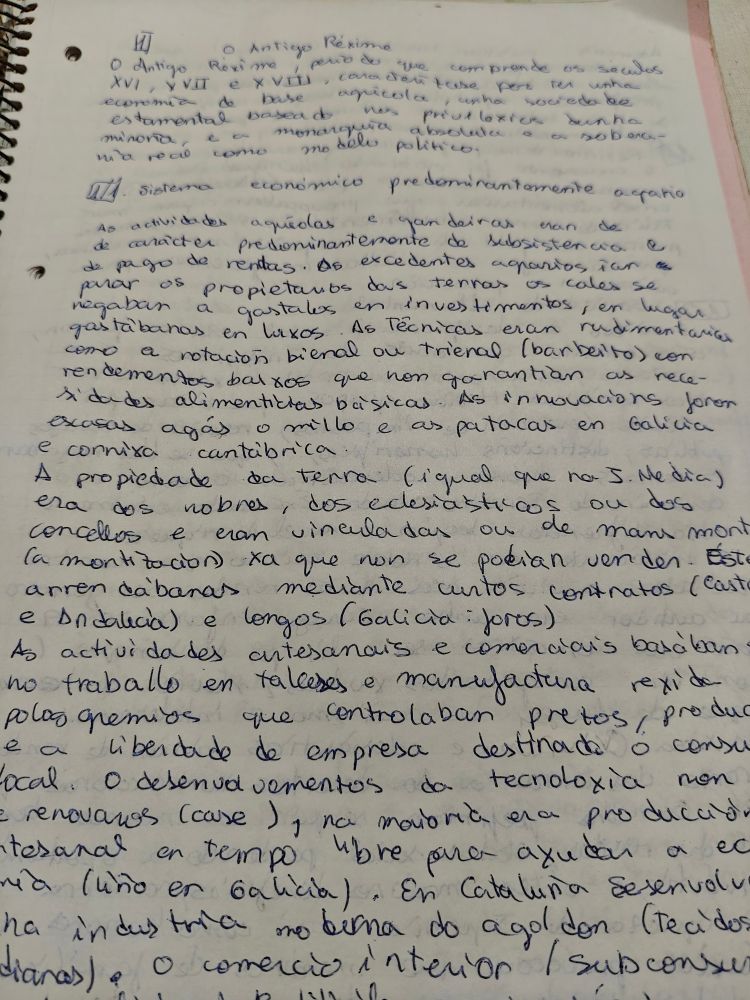 1
O Antigo Réxime
O Antigo Réxime, período que comprende os séculos
XVI, XVII e XVIII, caracterízase por ter unha
economía de base agrícola, unha sociedade
estamental baseada nos privilexios dunha
minoría, e a monarquía absoluta e a sobera-
nía real como modelo político.
1.1. Sistema económico predominantemente agrario
As actividades agrícolas e gandeiras eran de
de carácter predominantemente de subsistencia e
de pago de rendas. Os excedentes agrarios ían
parar os propietarios das terras os cales se
negaban a gastalos en investimentos, en lugar
gastábanas en luxos. As Técnicas eran rudimentarias
como a rotación bienal ou trienal (barbeito) con
rendementos baixos que non garantían as nece-
sidades alimenticias básicas. As innovacions foron
escasas agás o millo e as patacas en Galicia
e cornixa cantábrica.
A propiedade da terra (igual que na I. Media)
era dos nobres, dos eclesiásticos ou dos
concellos e eran vinculadas ou de mans mort
(amortizacion) xa que non se podían vender. Este
arrendábanas mediante curtos contratos (Caste
e Andalucía) e longos (Galicia: foros)
As actividades artesanais e comerciais basában
no traballo en talleres e manufactura rexida
polos gremios que controlaban prezos, produc
e a liberdade de empresa destinada ó consu
local. O desenvolvementos da tecnoloxía non
e renovaros (case), na maioría era producción
rtesanal en tempo libre para axudar a ec
mía (liño en Galicia). En Cataluña desenvolv
ha industria moderna do agoldon (Tecidos
dianas). O comercio interior (subconsum